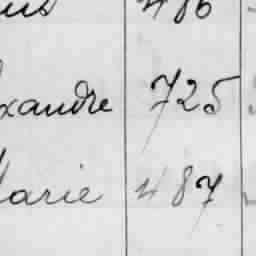 486
xandre 725
arie 487